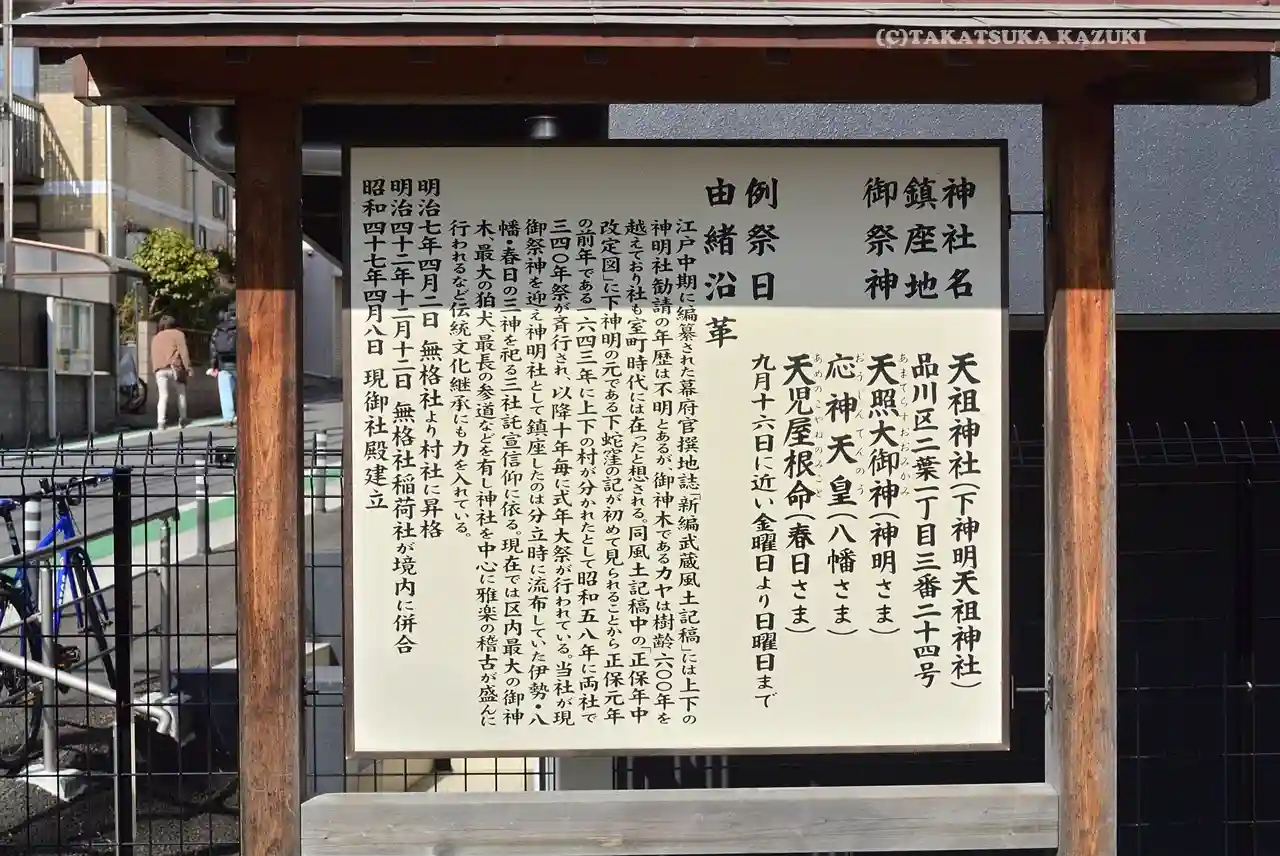 (C)TAKATSUKA KAZUKI
神社名　天祖神社(下神明天祖神社)
鎮座地　品川区二葉一丁目三番二十四号
御祭神　天照大御神(神明さま)
あまてらすおおみかみ
応神天皇(八幡さま)
おうじんてんのう
天児屋根命(春日さま)
あめのこやねのみこと
例祭日　九月十六日に近い金曜日より日曜日まで
由緒沿革
江戸中期に編纂された幕府官撰地誌「新編武蔵風土記稿」には上下の
神明社勧請の年歴は不明とあるが御神木であるカヤは樹齢六〇〇年を
越えており社も室町時代には在ったと想される。同風土記稿中の「正保年中
改定図」に下神明の元である下蛇窪の記が初めて見られることから正保元年
の前年である一六四三年に上下の村が分かれたとして昭和五八年に両社で
三四〇年祭が斉行され、以降十年毎に式年大祭が行われている。当社が現
御祭神を迎え神明社として鎮座したのは分立時に流布していた伊勢・八
幡・春日の三神を祀る三社託宣信仰に依る。現在では区内最大の御神
木、最大の狛犬、最長の参道などを有し神社を中心に雅楽の稽古が盛んに
行われるなど伝統文化継承にも力を入れている。
明治七年四月二日　無格社より村社に昇格
明治四十二年十二月十二日　無格社稲荷社が境内に併合
昭和四十七年四月八日　現御社殿建立